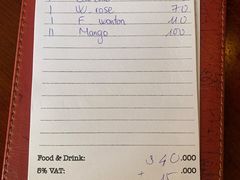 1 W. rose 70
1 F. wonton 110
11 Mango 100
Food & Drink: 340 .000
5% VAT: + 15 .000